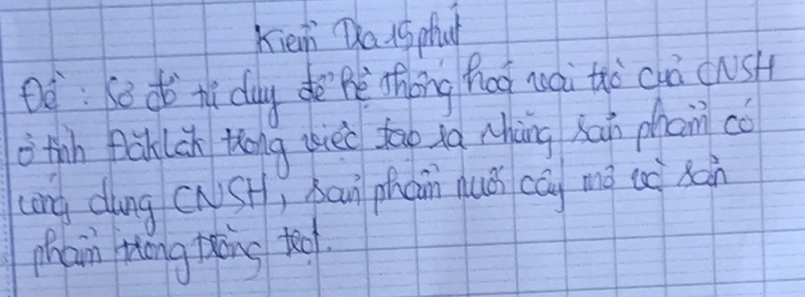 Kiểm Tra 15 phút
Đề: Sơ đồ tư duy để hệ thống hoá vai trò của CNSH
ở tỉnh Đăklăk trong việc tạo ra những sản phẩm có
công dụng CNSH, sản phẩm nuôi cấy mô và sản
phẩm trong trồng trọt.